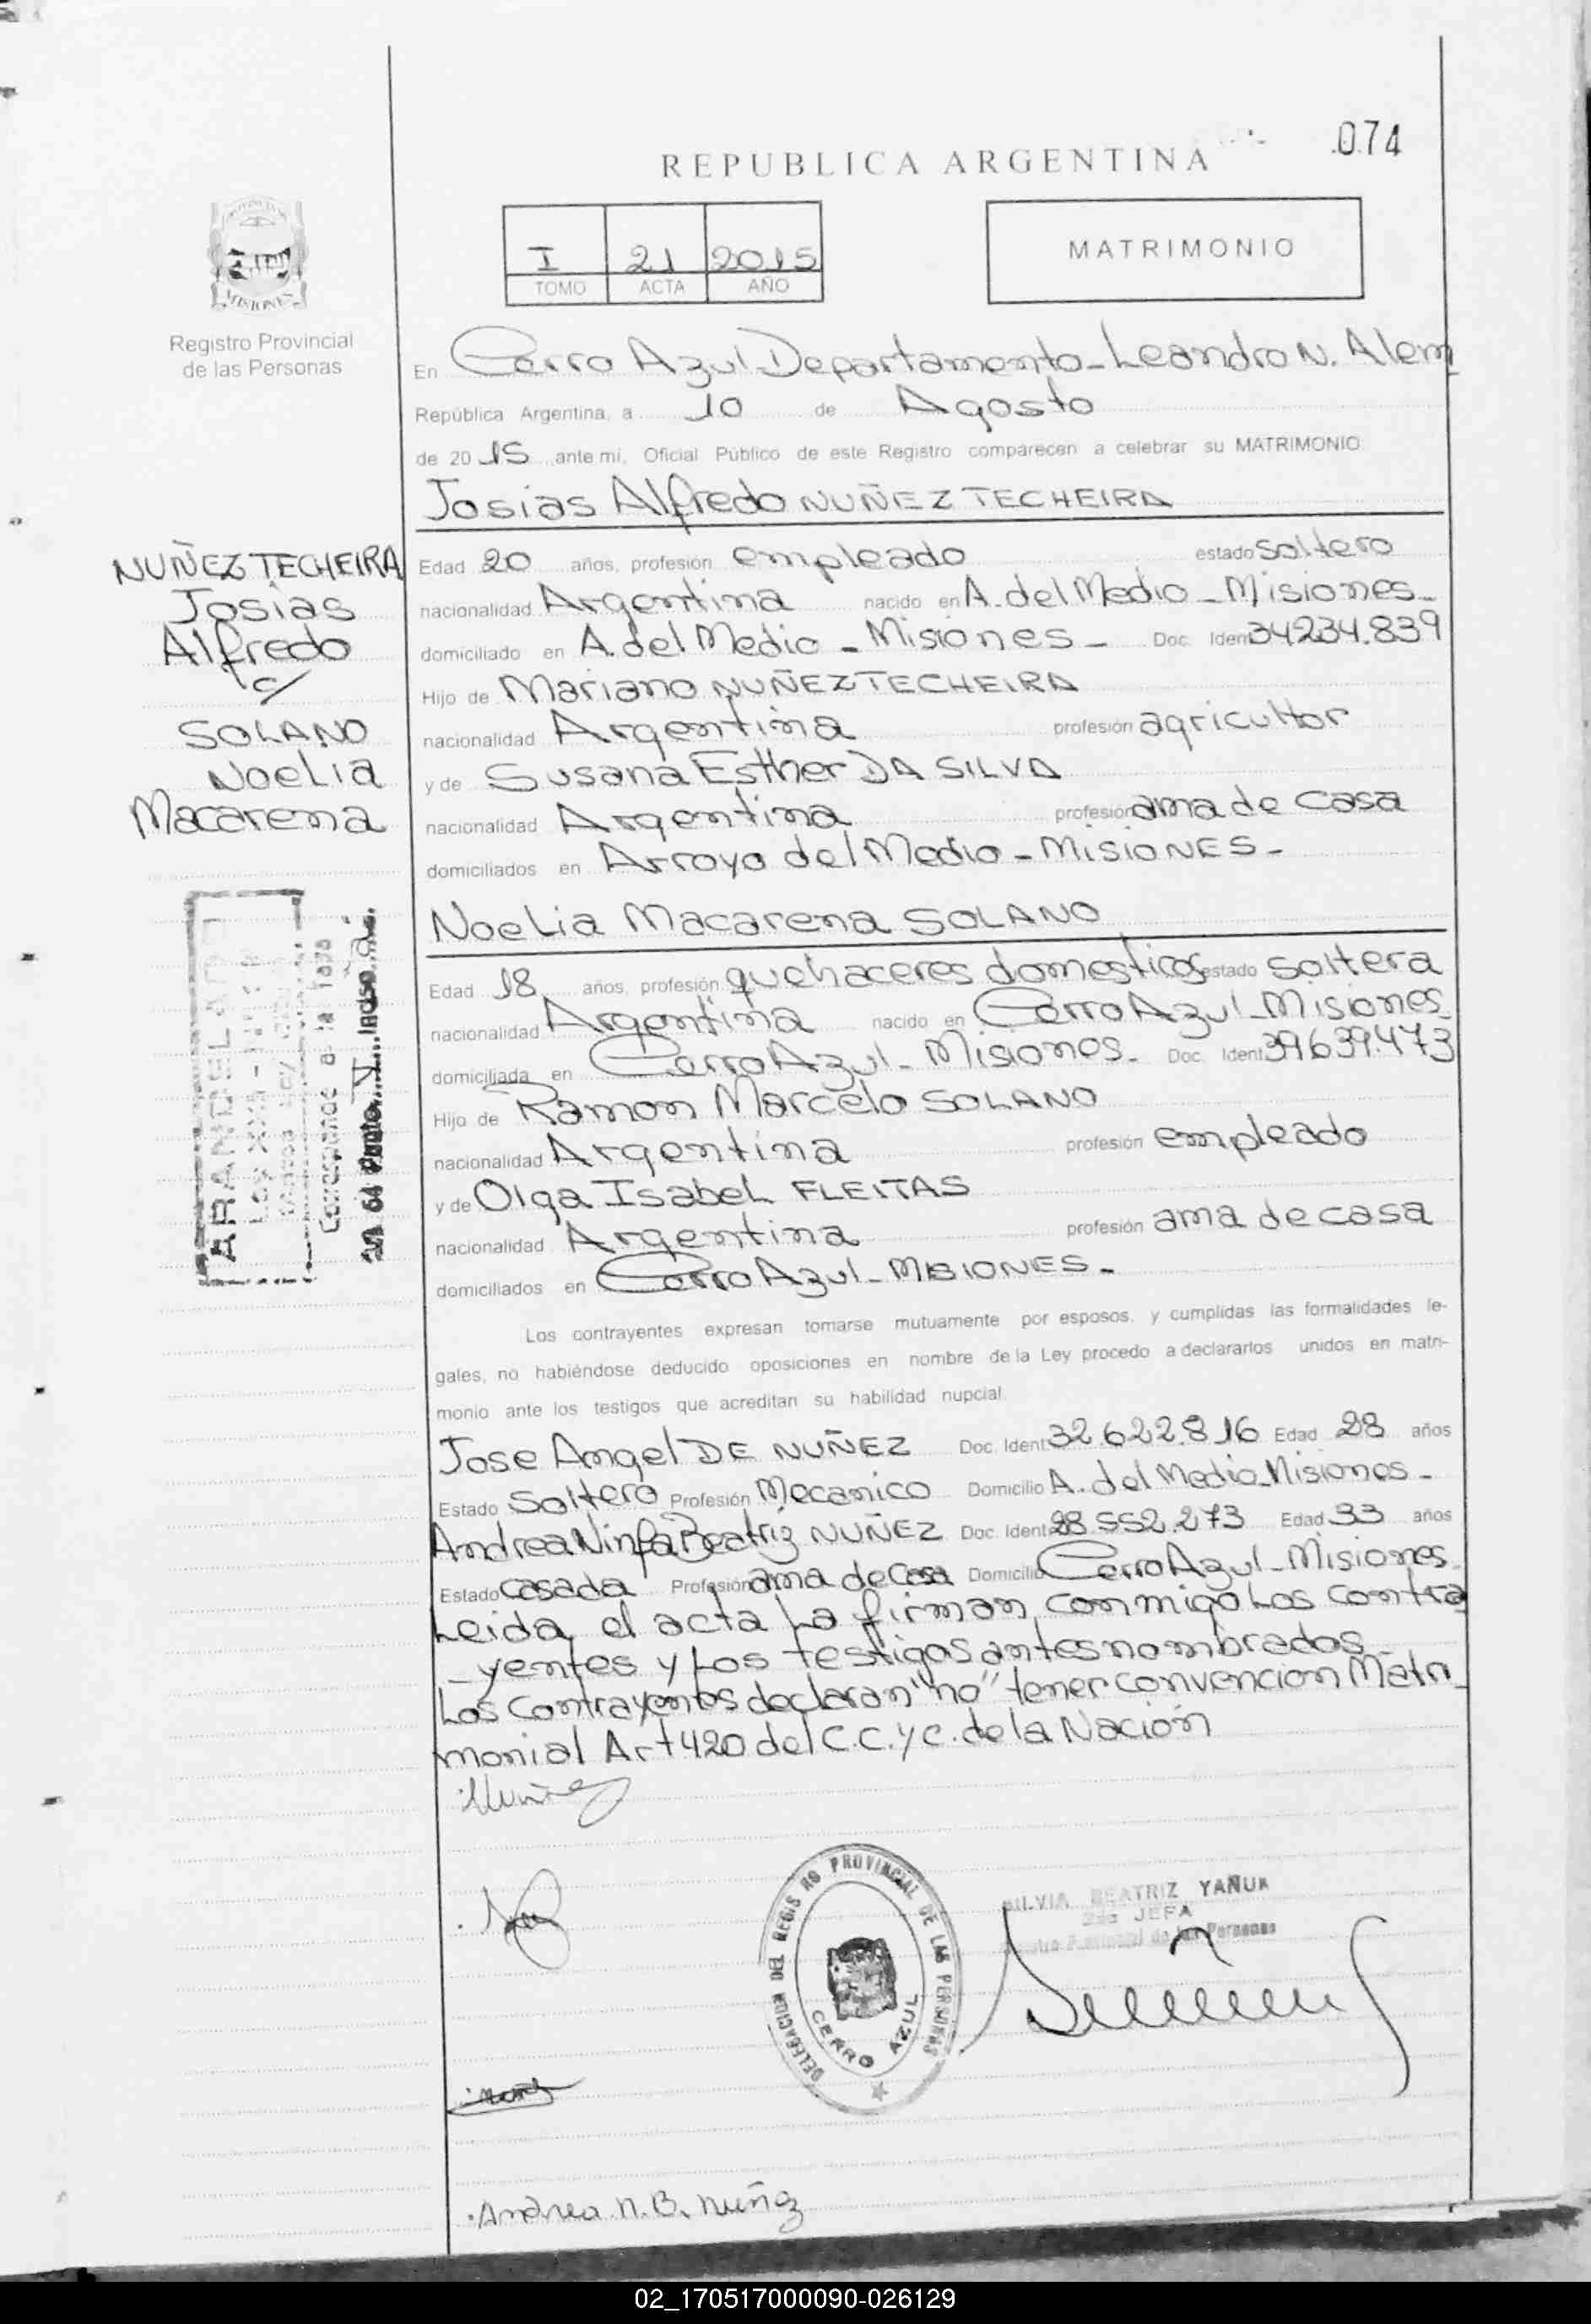 .074
REPUBLICA ARGENTINA
I 21 2015
TOMO ACTA AÑO
MATRIMONIO
Registro Provincial
de las Personas
En Cerro Azul Departamento-Leandro N. Alem
República Argentina, a 10 de Agosto
de 2015 ante mi, Oficial Público de este Registro comparecen a celebrar su MATRIMONIO:
Josias Alfredo NUÑEZ TECHEIRA
NUÑEZ TECHEIRA
Josias
Alfredo
c/
SOLANO
Noelia
Macarena
Edad 20 años, profesión empleado estado soltero
nacionalidad Argentina nacido en A. del Medio - Misiones-
domiciliado en A. del Medio - Misiones - Doc. Ident 34234.839
Hijo de Mariano NUÑEZ TECHEIRA
nacionalidad Argentina profesión agricultor
y de Susana Esther DA SILVA
nacionalidad Argentina profesión ama de casa
domiciliados en Arroyo del Medio - MISIONES -
Noelia Macarena SOLANO
Edad 18 años, profesión quehaceres domesticos estado soltera
nacionalidad Argentina nacido en Cerro Azul - Misiones
domiciliada en Cerro Azul - Misiones- Doc. Ident 39639.473
Hijo de Ramon Marcelo SOLANO
nacionalidad Argentina profesión empleado
y de Olga Isabel FLEITAS
nacionalidad Argentina profesión ama de casa
domiciliados en Cerro Azul - MISIONES -
ARANCELADO
Corresponde a la tasa
Punto Inciso a.
Los contrayentes expresan tomarse mutuamente por esposos, y cumplidas las formalidades le-
gales, no habiéndose deducido oposiciones en nombre de la Ley procedo a declararlos unidos en matri-
monio ante los testigos que acreditan su habilidad nupcial.
Jose Angel DE NUÑEZ Doc. Ident 32.622.816 Edad 28 años
Estado Soltero Profesión Mecanico Domicilio A. del Medio-Misiones-
Andrea Ninfa Beatriz NUÑEZ Doc. Ident 28.552.273 Edad 33 años
Estado casada Profesión ama de casa Domicilio Cerro Azul - Misiones
Leida el acta La firman conmigo Los contra
yentes y Los testigos antes nombrados
Los Contrayentes declaran "no" tener convencion Matri
monial Art 420 del C.C. y C. de la Nación
Nuñez
DELEGACION DEL REGISTRO PROVINCIAL DE LAS PERSONAS
CERRO AZUL
SILVIA BEATRIZ YAÑUK
JEFA
Registro Provincial de las Personas
Andrea N.B. Nuñez
02_170517000090-026129